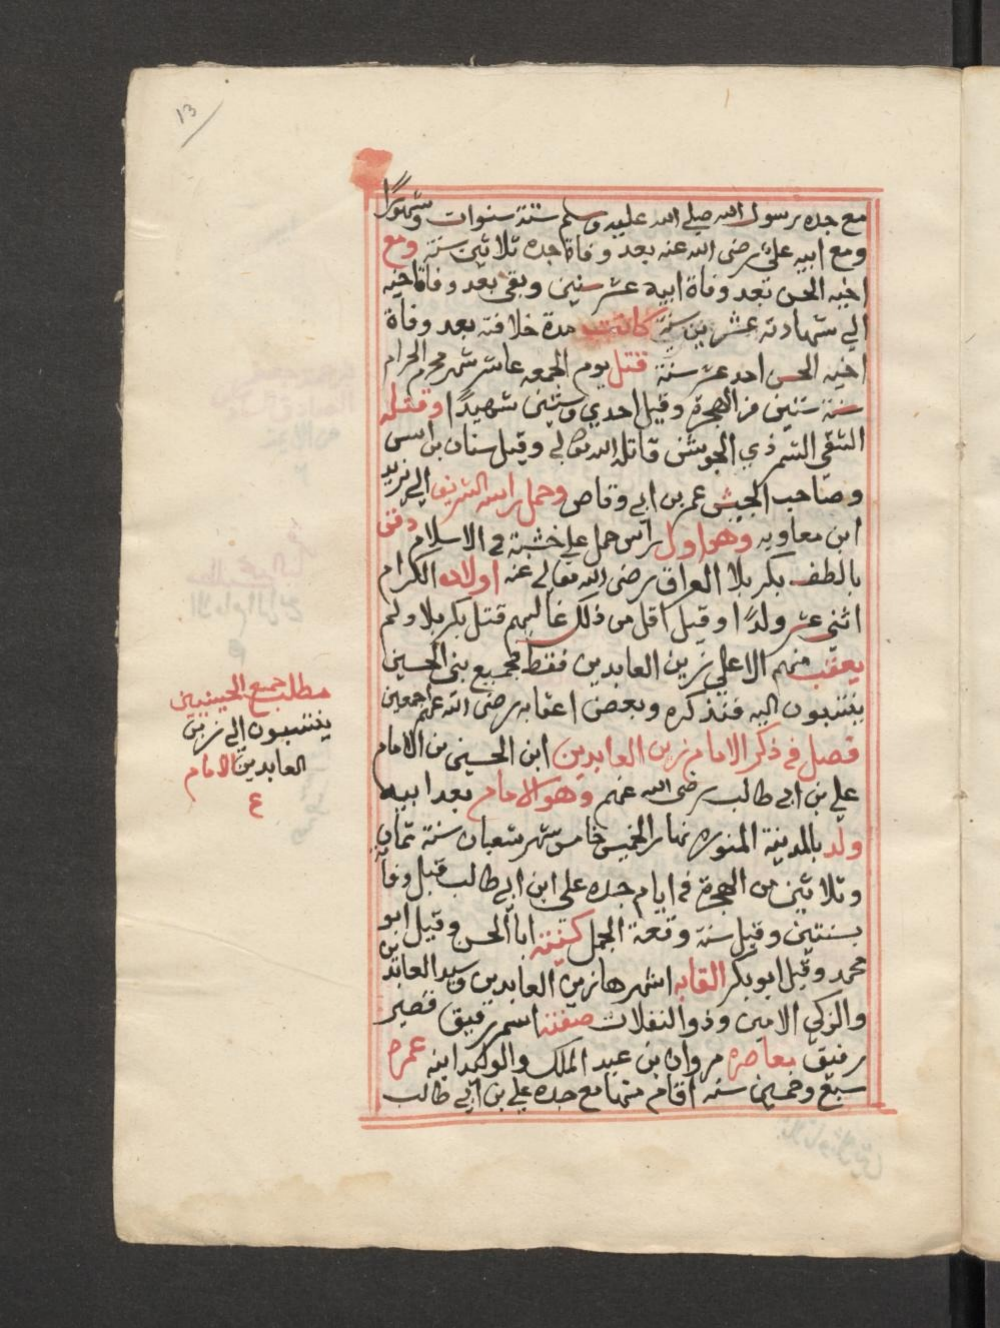 13
مع جده رسول الله صلي الله عليه وسلم ستة سنوات وشهورا
ومع ابيه علي رضى الله عنه بعد وفاة جده ثلاثين سنة ومع
اخيه الحسن بعد وفاة ابيه عشر سنين وبقى بعد وفاة اخيه
الي شهادته عشرين سنة كانت مدة خلافته بعد وفاة
اخيه الحسن احد عشر سنة قتل يوم الجمعه عاشر شهر محرم الحرام
سنة ستين من الهجرة وقيل احدي وستين شهيدًا وقتله
الشقي الشمر ذي الجوشن قاتله الله تعالي وقيل سنان بن انس
وصاحب الجيش عمر بن ابي وقاص وحمل راسه الشريف الي يزيد
ابن معاويه وهو اول راس حمل علي خشبة في الاسلام دفن
بالطف بكربلا العراق رضى الله تعالي عنه اولاده الكرام
اثني عشر ولدًا وقيل اقل من ذلك غالبهم قتل بكربلا ولم
يعقب منهم الا علي زين العابدين فقط فجميع بني الحسين
ينتسبون اليه فنذكره وبعض اعقابه رضى الله عنهم اجمعين
فصل في ذكر الامام زين العابدين ابن الحسين بن الامام
علي بن ابي طالب رضى الله عنهم وهو الامام بعد ابيه
ولد بالمدينة المنوره نهار الخميس خامس شهر شعبان سنة ثمان
وثلاثين من الهجرة في ايام جده علي ابن ابي طالب قبل وفاته
بسنتين وقيل سنة وقعة الجمل كنيته ابا الحسن وقيل ابو
محمد وقيل ابو بكر القابه اشهرها زين العابدين وسيد العابدين
والزكي الامين وذو النفلات صفته اسمر رقيق قصير
رفيق معاصره مروان بن عبد الملك والوليد ابنه عمره
سبع وخمسين سنه اقام منها مع جده علي بن ابي طالب
مطلب جميع الحسينيين
ينتسبون الي زين
العابدين الامام
٤